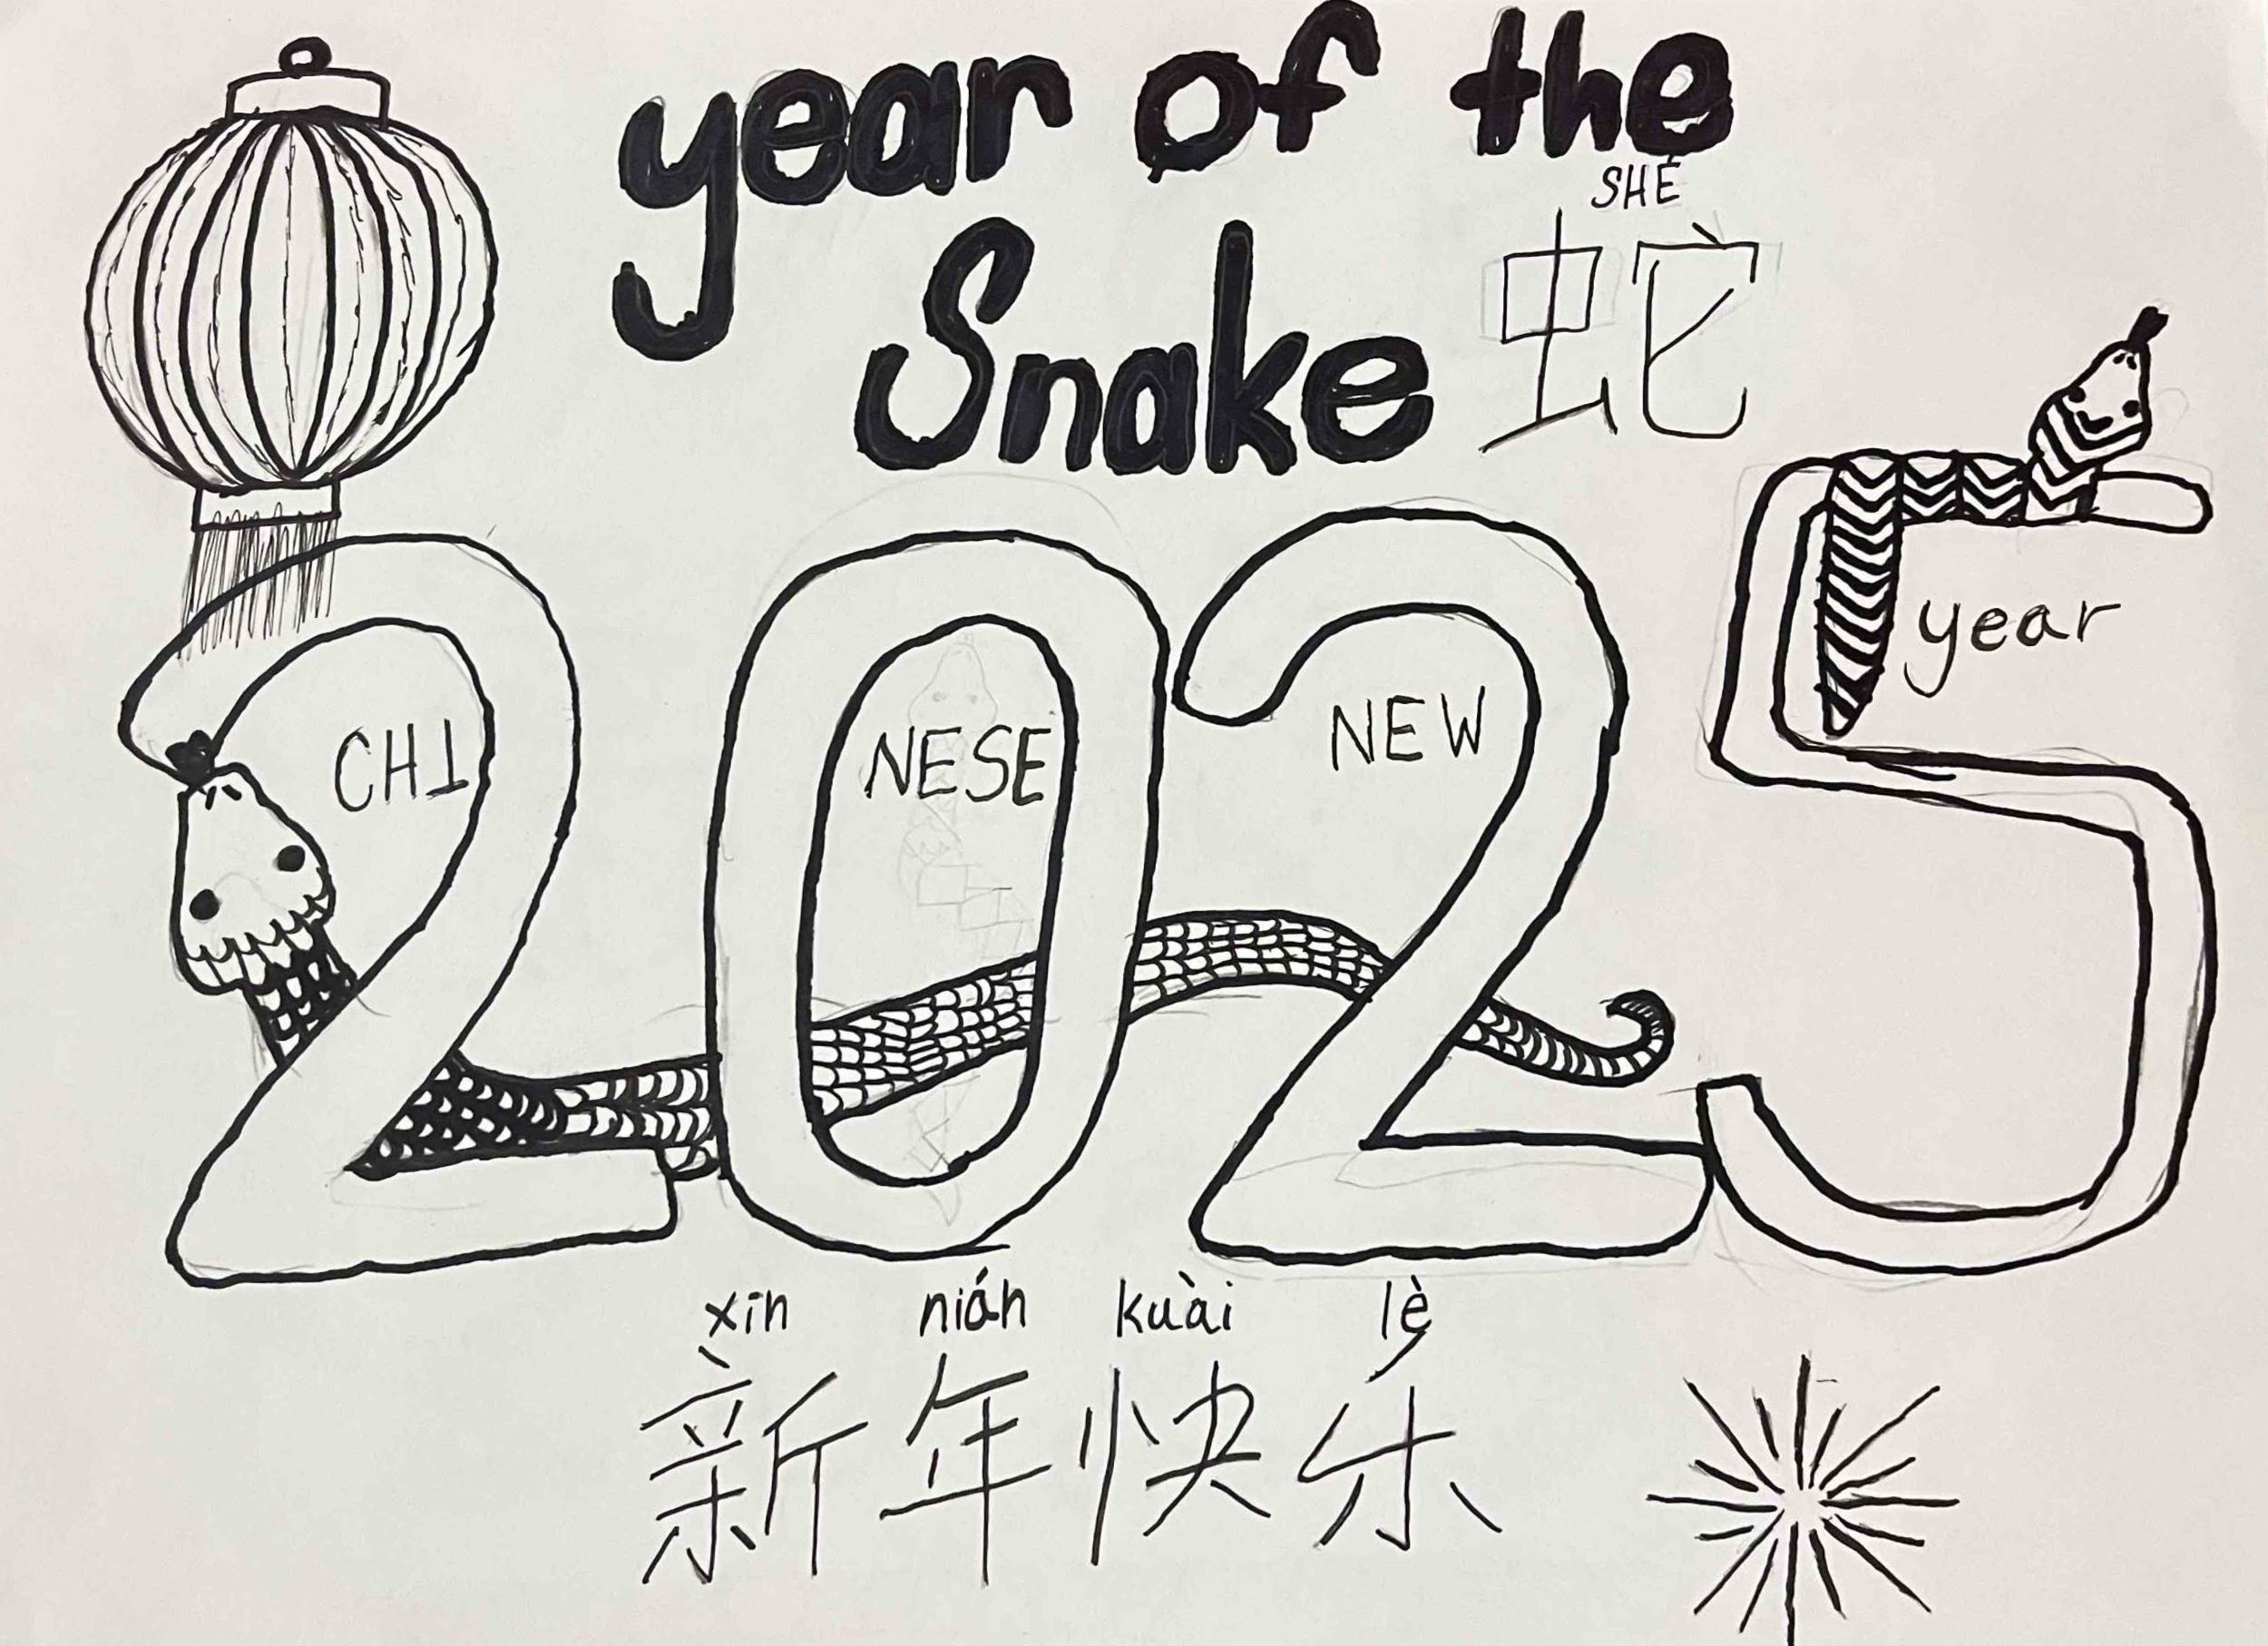 year of the
SHÉ
Snake 蛇
2025
CHI NESE NEW year
xīn nián kuài lè
新年快乐